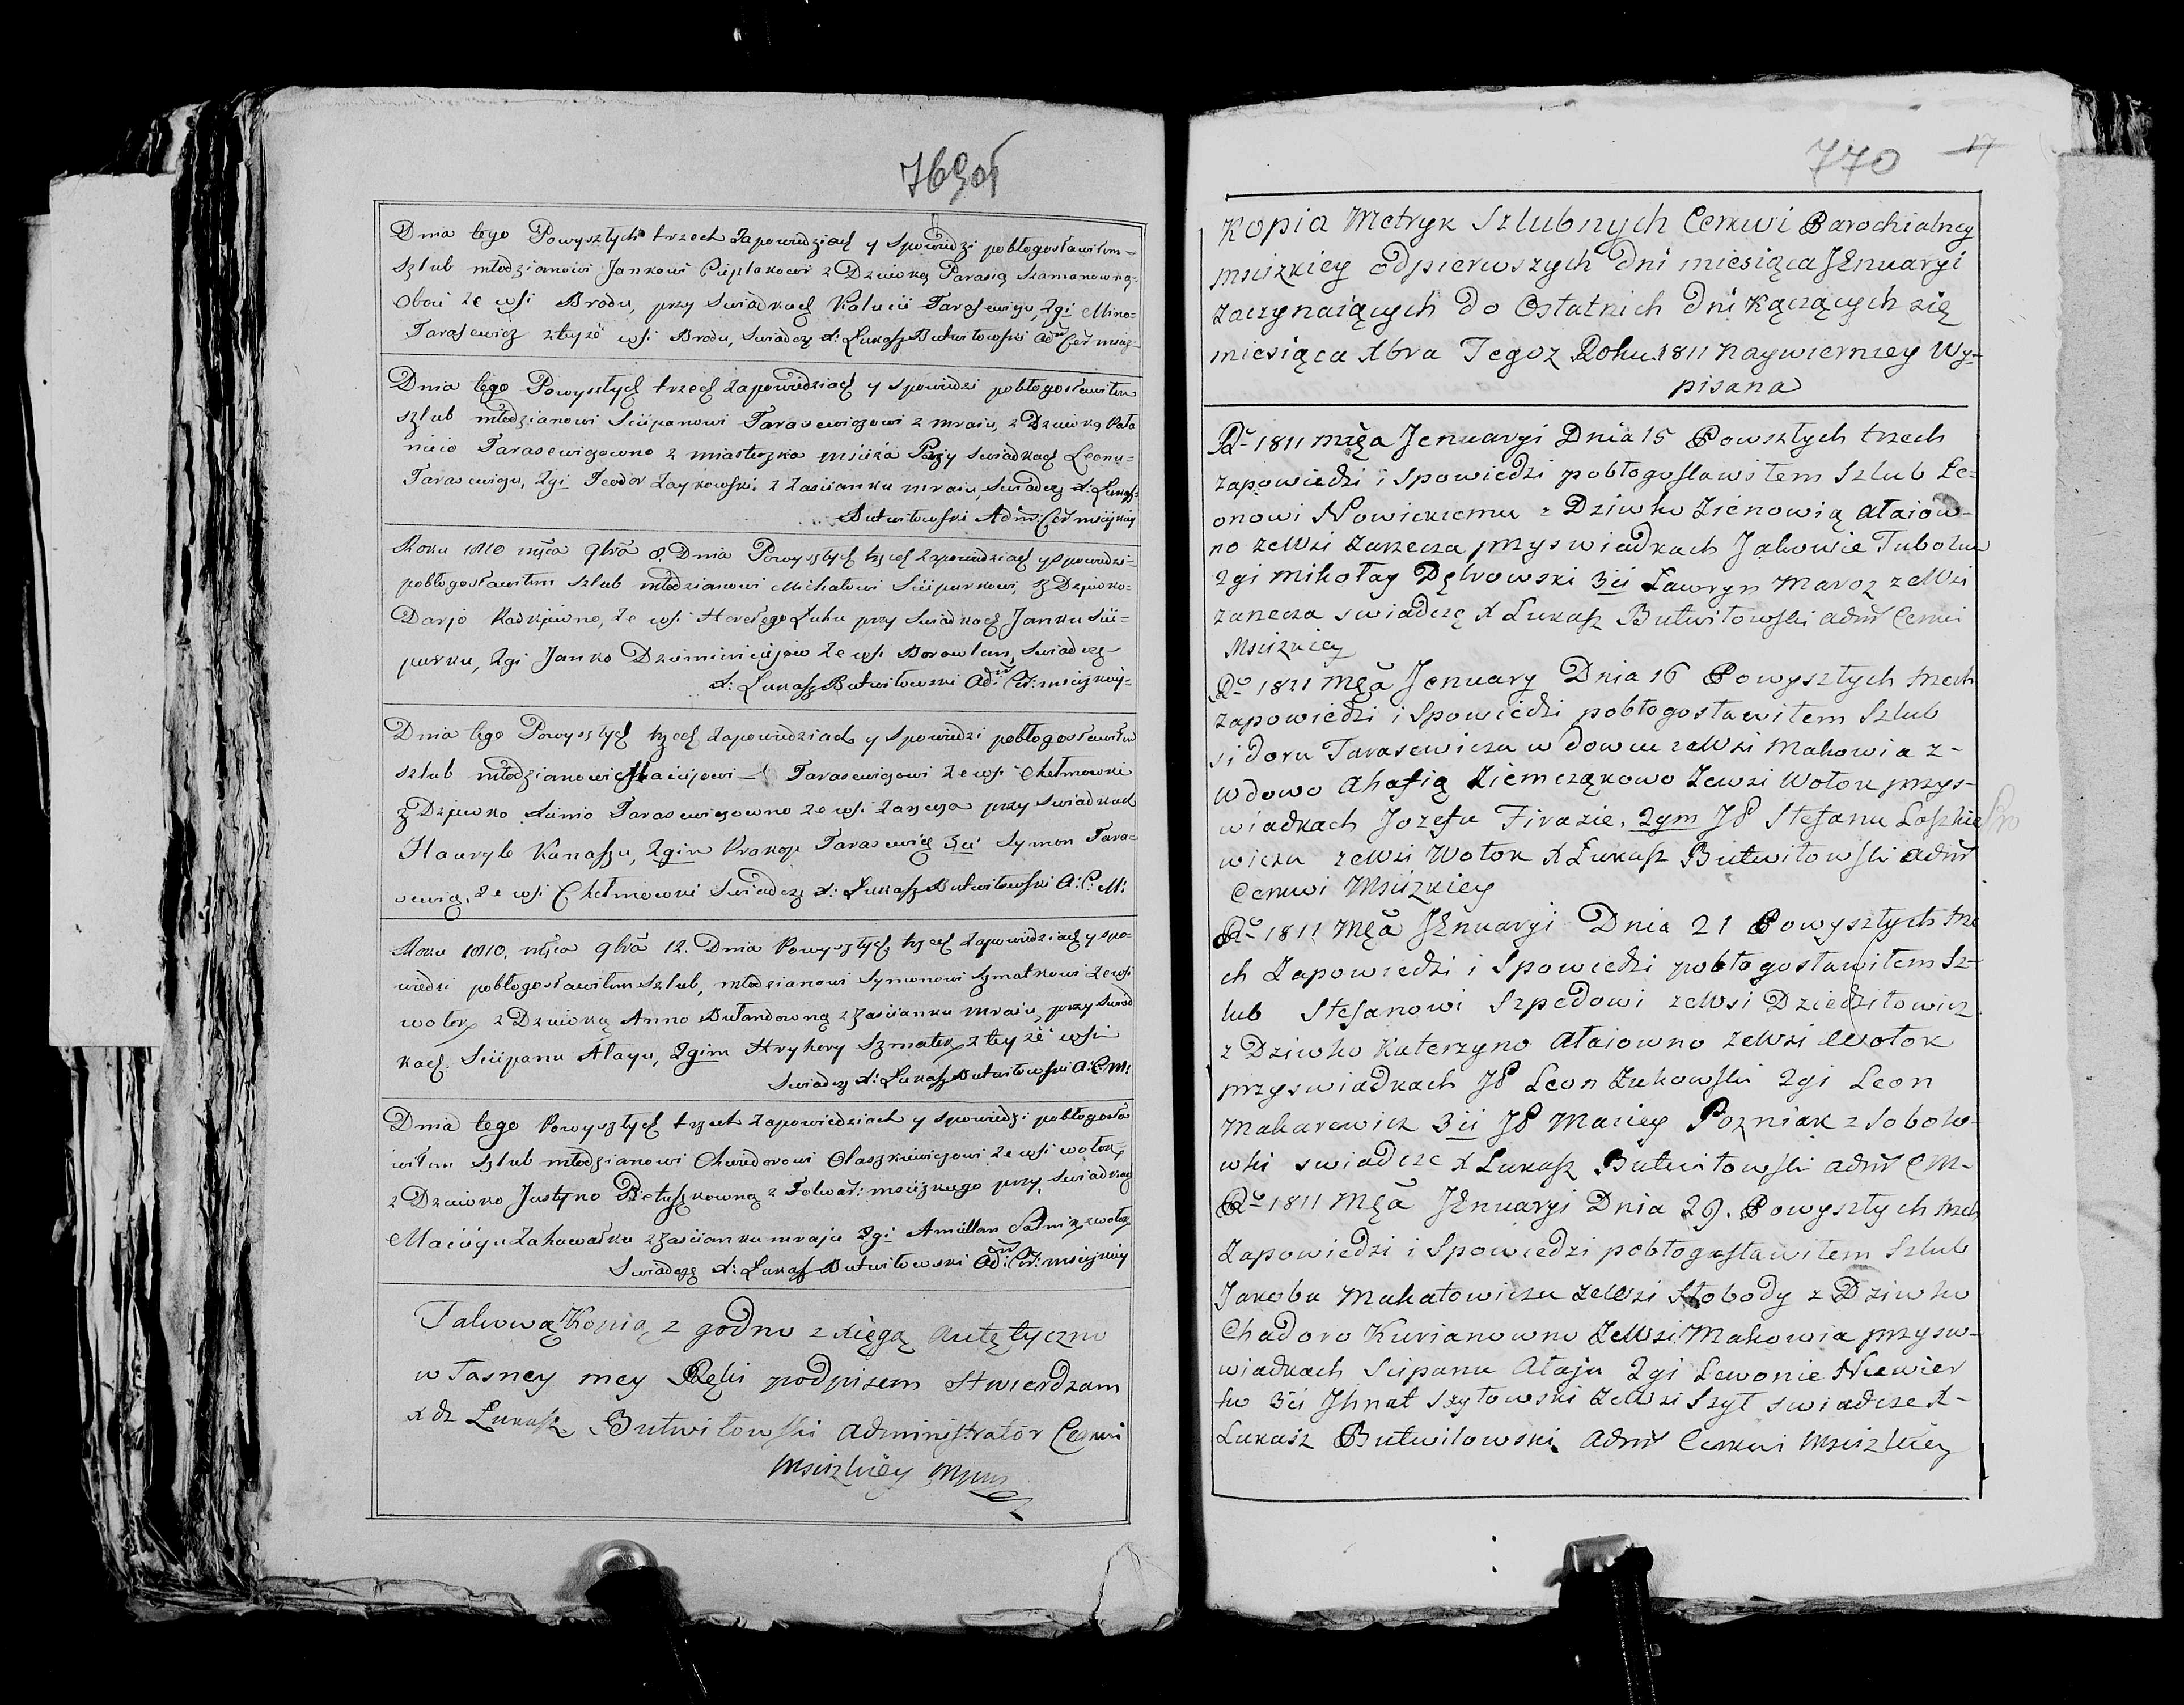 769об
Dnia tego Powyszłych trzech Zapowiedziach y Spowiedzi pobłogosławiłem
Szlub młodzianowi Jankowi Cieplakowi z Dziewką Parasią Szamanowną
Oboii ze wsi Brodu, przy Swiadkach Tarasewiczu, 2gi Mino
Tarasewicz z teyże wsi Brodu, Swiadczę X: Łukasz Butwiłowski Adm Cer msciz
Dnia tego Powyszłych trzech Zapowiedziach y Spowiedzi pobłogosławiłem
szlub młodzianowi Sciepanowi Tarasewiczowi z mraiu, z Dziewką Pała
Tarasewiczowno z miasteczka Mściża Przy Swiadkach Leonu
Tarasewiczu, 2gi Teodor Zaykowski z Zascianku mraiu Swiadczę X: Łukasz
Butwiłowski Adm: Cer mscizkiey
Roku 1810 mca 9bra 8 Dnia Powyszłych trzech Zapowiedziach y Spowiedzi
pobłogosławiłem Szlub młodzianowi Michałowi Sciepurkowi, z Dziewko
Darjo ze wsi Horełego Łuhu przy Swiadkach Janku Scie-
purku, 2gi Janko ze wsi Borowlan, Swiadczę
X: Łukasz Butwiłowski Ad: Cer: mscizkiey
Dnia tego Powyszłych trzech Zapowiedziach y Spowiedzi pobłogosławiłem
szlub młodzianowi Maciejowi Tarasewiczowi ze wsi Chełmowki
z Dziewko Tarasewiczowno ze wsi Zarzecza przy Swiadkach
Hauryle Kanaszu, 2gim Prakop Tarasewicz 3ci Symon Tara-
sewicz, ze wsi Chełmowki Swiadczę X: Łukasz Butwiłowski A: C: M:
Roku 1810, mca 9bra 12. Dnia Powyszłych trzech Zapowiedziach y Spo-
wiedzi pobłogosławiłem Szlub, młodzianowi Symonowi Szmatkowi ze wsi
wołok z Dziewką Anno Bułandowną z Zascianku mraiu, przy Swiad
kach Sciepanu Ałayu, 2gim Hryhory Szmatek z teyże wsi
Swiadczę X: Łukasz Butwiłowski A: C: M:
Dnia tego Powyszłych trzech Zapowiedziach y Spowiedzi pobłogosła
wiłem Szlub młodzianowi Chwiedorowi Ołaszkiewiczowi ze wsi wołok
z Dziewko Justyno z Folwar: mscizkiego przy Swiadkach
Macieju Zahawałku z Zascianku mraju 2gi z wołok
Swiadczę X: Łukasz Butwiłowski Ad: Cer: mscizkiey
Takową Kopią z godno z Xięgą Autętyczno
własney mey Ręki podpisem stwierdzam
X dz Łukasz Butwiłowski Administrator Cerkwi
Mscizkiey
770 17
Kopia Metryk Szlubnych Cerkwi Parochialney
Mscizkiey odpierwszych dni miesiąca JEnuaryi
Zaczynaiących do Ostatnich dni Kączących się
miesiąca Xbra Tegoz Roku 1811 naywierniey Wy-
pisana
Ru 1811 mcą Jenuaryi Dnia 15 Powszłych trzech
zapowiedzi i Spowiedzi pobłogosławiłem Szlub Le-
onowi Nowickiemu z Dziwko Zienowią Ałaiow-
no zeWsi Zarzecza przyswiadkach Jakowie Tubolcu
2gi Mikołay Dębrowski 3ci Ławryn Maroz zeWsi
zarzecza swiadczę X Łukasz Butwiłowski adm Cerkwi
Mscizkiey
Ru 1811 Mcą Jenuary Dnia 16 Powyszłych trzech
zapowiedzi i Spowiedzi pobłogosławiłem Szlub
sidoru Tarasewiczu wdowcu zeWsi Makowia z-
wdowo Ahafią Ziemcząkowo Zewsi Wołok przys-
wiadkach Jozefu Firazie, 2gym JP Stefanu Łaszkie
wiczu zeWsi Wołok X Łukasz Butwiłowski adm
Cerkwi Mscizkiey
Ru 1811 Mcą JEnuaryi Dnia 21 Powyszłych trze
ch Zapowiedzi i Spowiedzi pobłogosławiłem Sz-
lub Stefanowi Szpedowi zeWsi Dziedziłowicz
z Dziwko Katerzyno Ałaiowno zeWsi Wołok
przyswiadkach JP Leon Żukowski 2gi Leon
Makarewicz 3ci JP Maciey Pozniak z Sobolw-
wki swiadcze X Łukasz Butwiłowski adm C M-
Ru 1811 Mcą JEnuaryi Dnia 29. Powyszłych trzch
Zapowiedzi i Spowiedzi pobłogosławiłem Szlub
Jakobu Makatowiczu zeWsi Słobody z Dziwko
Chadoro Kurianowno ZeWsi Makowia przysw-
wiadkach Scipanu Ałaju 2gi Lewonie Niewier
ko 3ci Jhnat Szyłowski ZeWsi Szył swiadcze X-
Łukasz Butwiłowski adm Cerkwi Mscizkiey